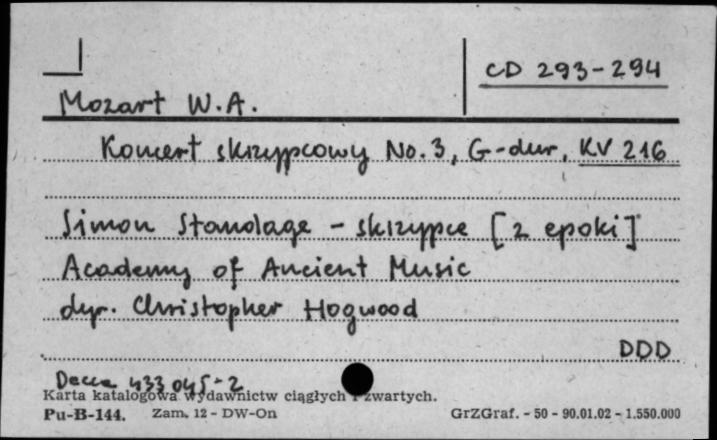 CD 293-294
Mozart W.A.
Koncert skrzypcowy No. 3, G-dur, KV 216
Simon Standage - skrzypce [z epoki]
Academy of Ancient Music
dyr. Christopher Hogwood
DDD
Decca 433 045-2
Karta katalogowa wydawnictw ciągłych i zwartych.
Pu-B-144. Zam. 12 - DW-On GrZGraf. - 50 - 90.01.02 - 1.550.000